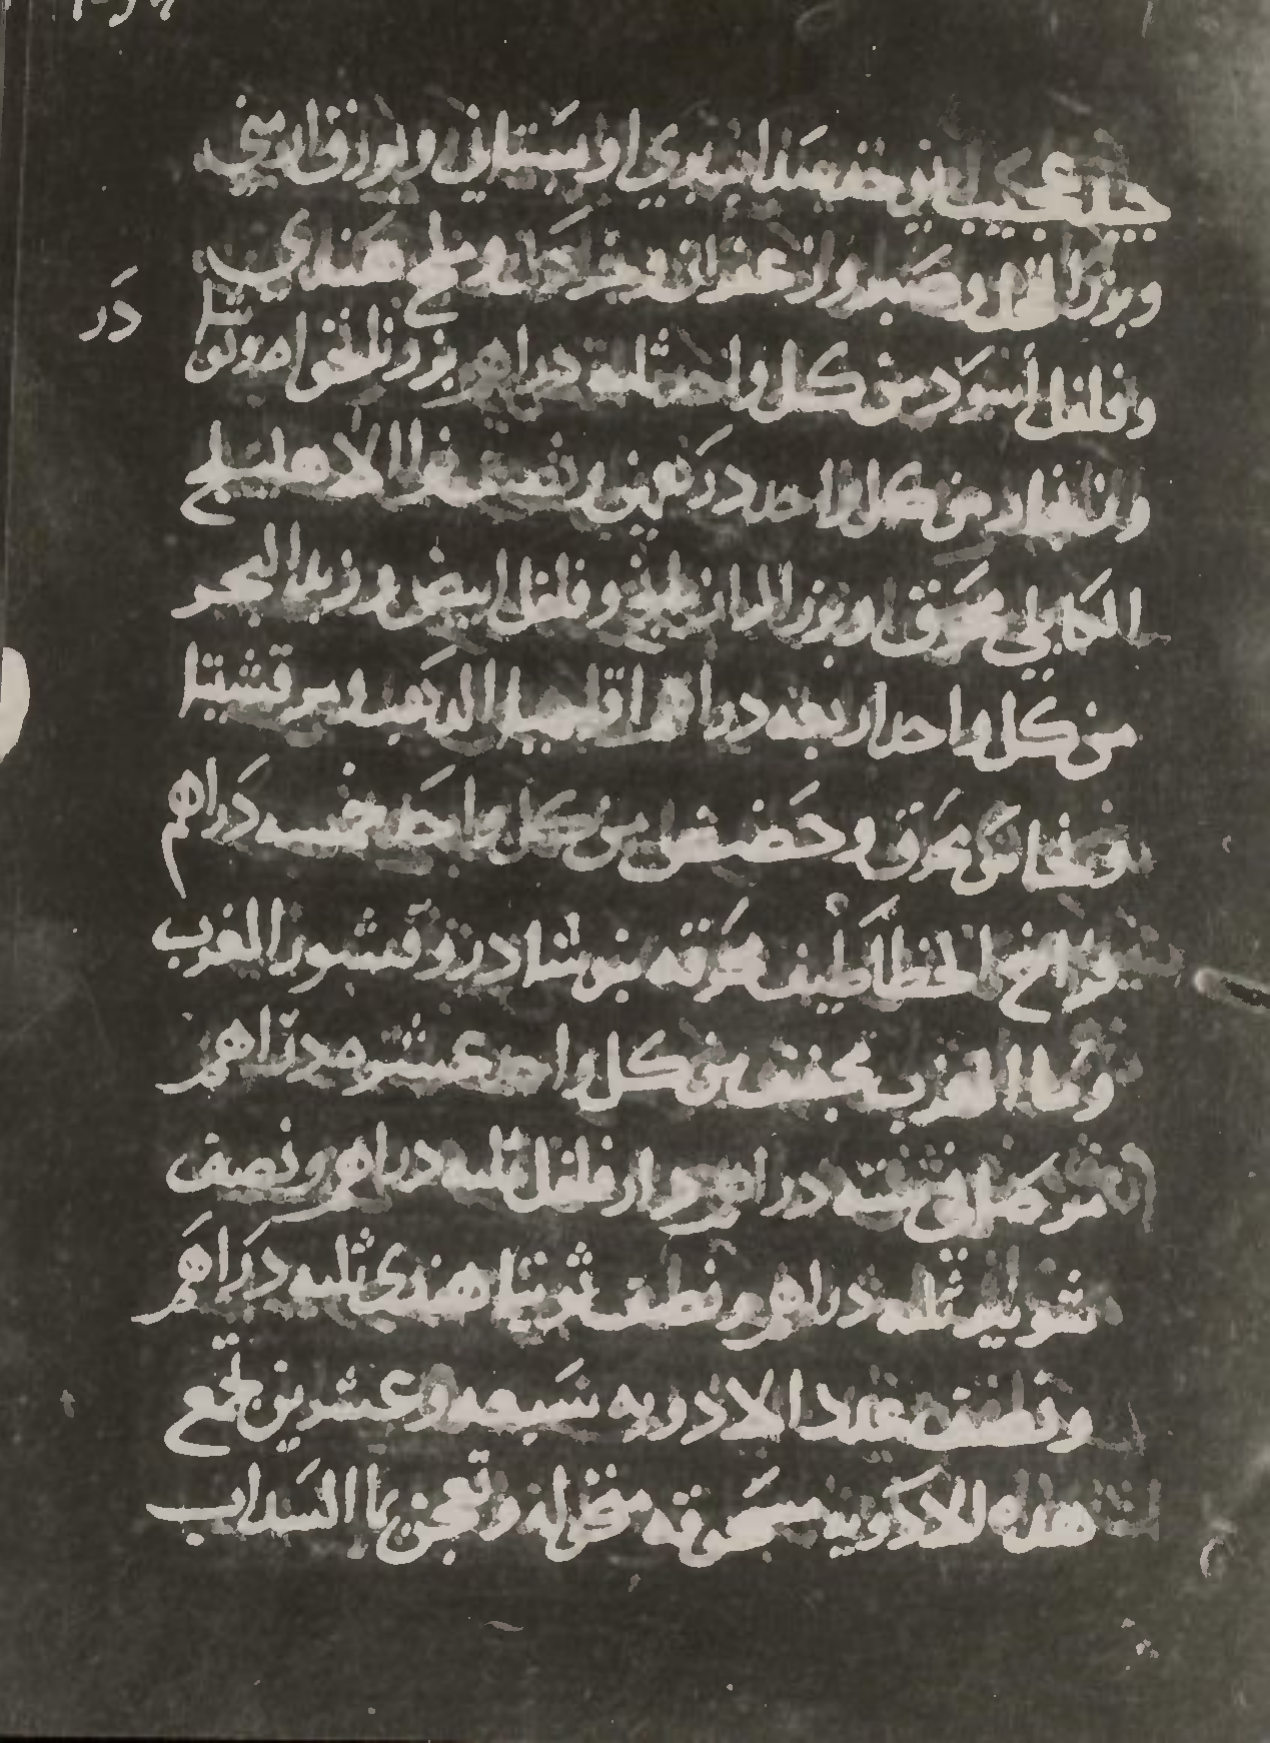 جيد عجيب يوخذ سذاب بري او بستاني وبورق ارمني
وبزر الجل وصبر وزعفران وخردل وملح هندي
وفلفل أسود من كل واحد ثلثة دراهم بزر نانخواه ونوشا
در
من كل واحد درهمين ونصف نوا الاهليلج
الكابلي محرق وبزر الرازيانج وفلفل ابيض وزبد البحر
من كل واحد اربعه دراهم اقليميا الذهب ومرقشيتا
ونحاس محرق وحضض من كل واحد خمسه دراهم
فراخ الخطاطيف محرقه نوشادر وقشور الغرب
وما الغرب مجفف من كل واحد عشره دراهم
مر صافي سته دراهم دار فلفل ثلثه دراهم ونصف
شونيز ثلثه دراهم ونصف توتيا هندي ثلثه دراهم
ونصف عدد الادويه سبعه وعشرين تجمع
هذه الادويه مسحوقه منخوله وتعجن بما السداب